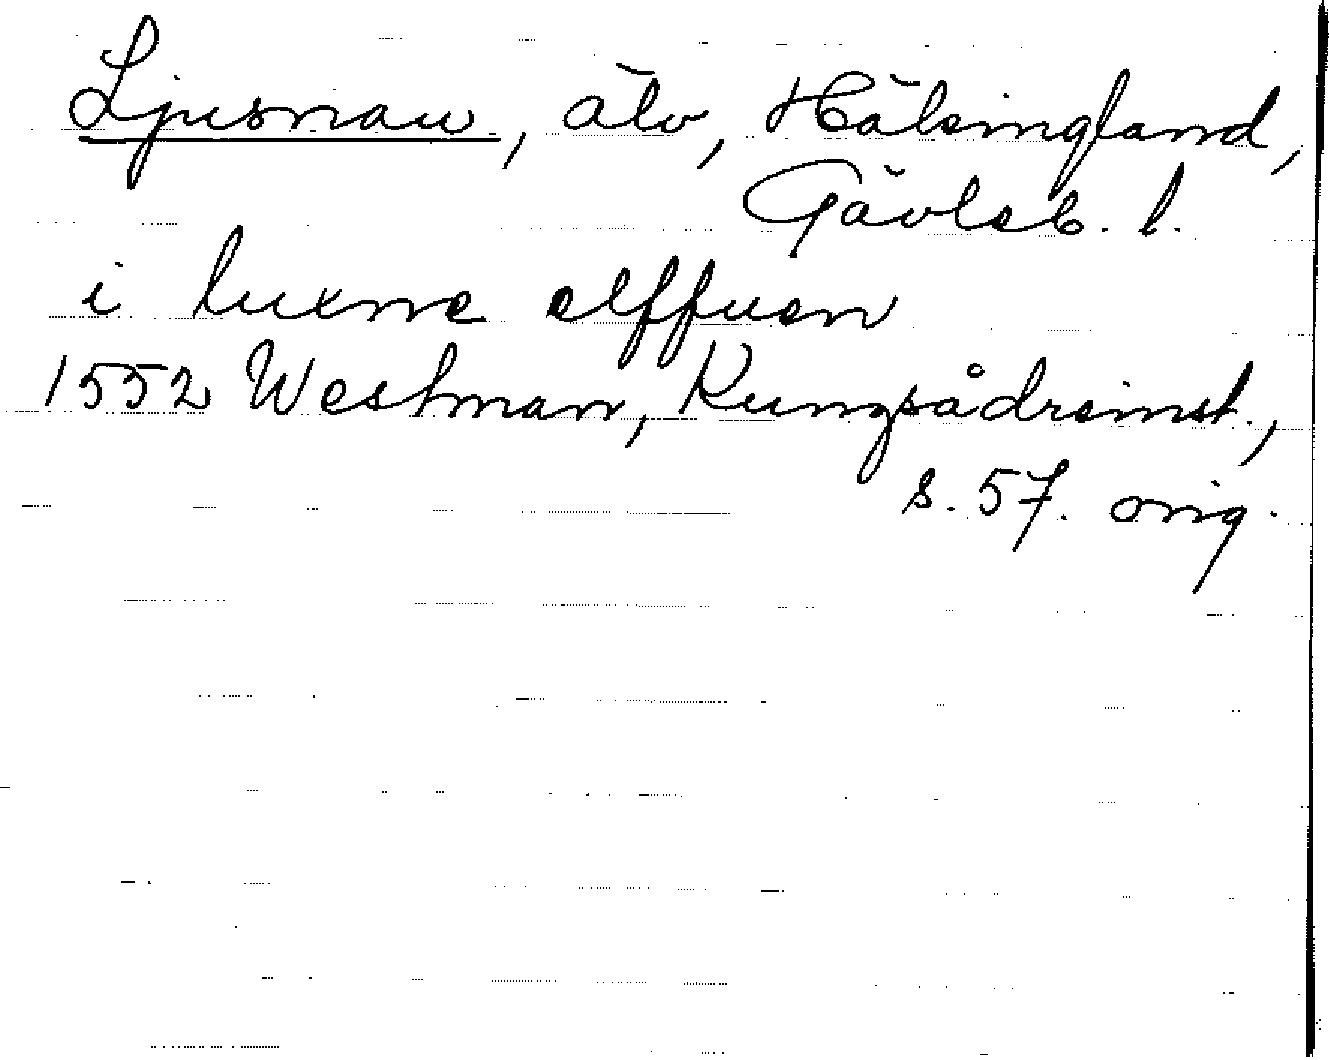 Ljusnan, älv, Hälsingland,
Gävleb. l.
i luxne elffuen
1552 Westman, Kungsådreinst.,
s. 57. orig.